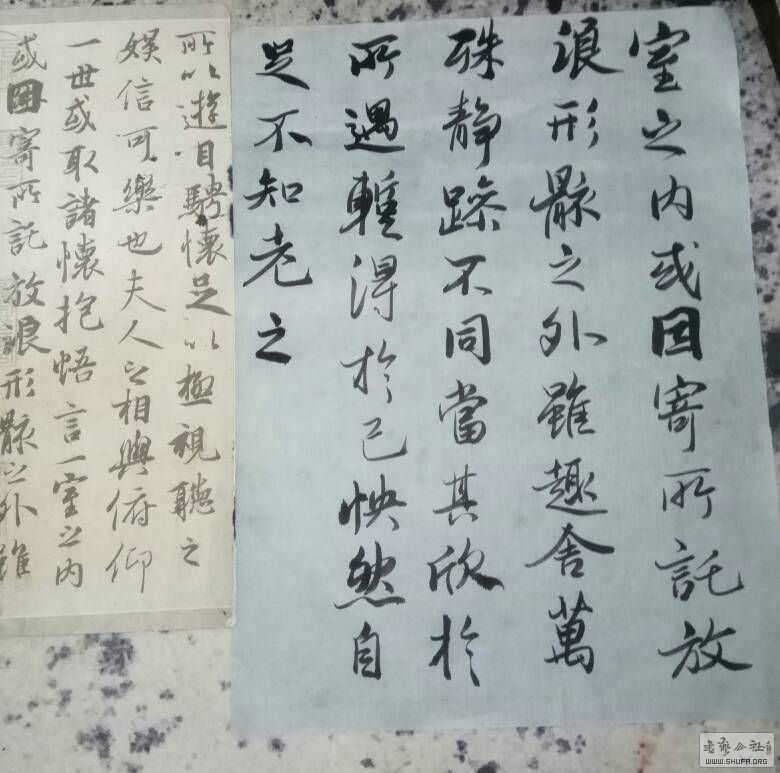 室之内或因寄所託放
浪形骸之外雖趣舍萬
殊静躁不同當其欣於
所遇蹔得於己怏然自
足不知老之
所以遊目騁懷足以極視聽之
娱信可樂也夫人之相與俯仰
一世或取諸懷抱悟言一室之内
或因寄所託放浪形骸之外雖
書藝公社
WWW.SHUFA.ORG